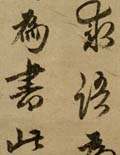 求語為
為書此